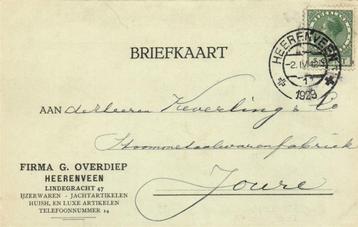 BRIEFKAART
HEERENVEEN
1
1928
AAN de Heeren Keverling & Co
Stoommetaalwarenfabriek
Joure
FIRMA G. OVERDIEP
HEERENVEEN
LINDEGRACHT 47
IJZERWAREN - JACHTARTIKELEN
HUISH. EN LUXE ARTIKELEN
TELEFOONNUMMER 14